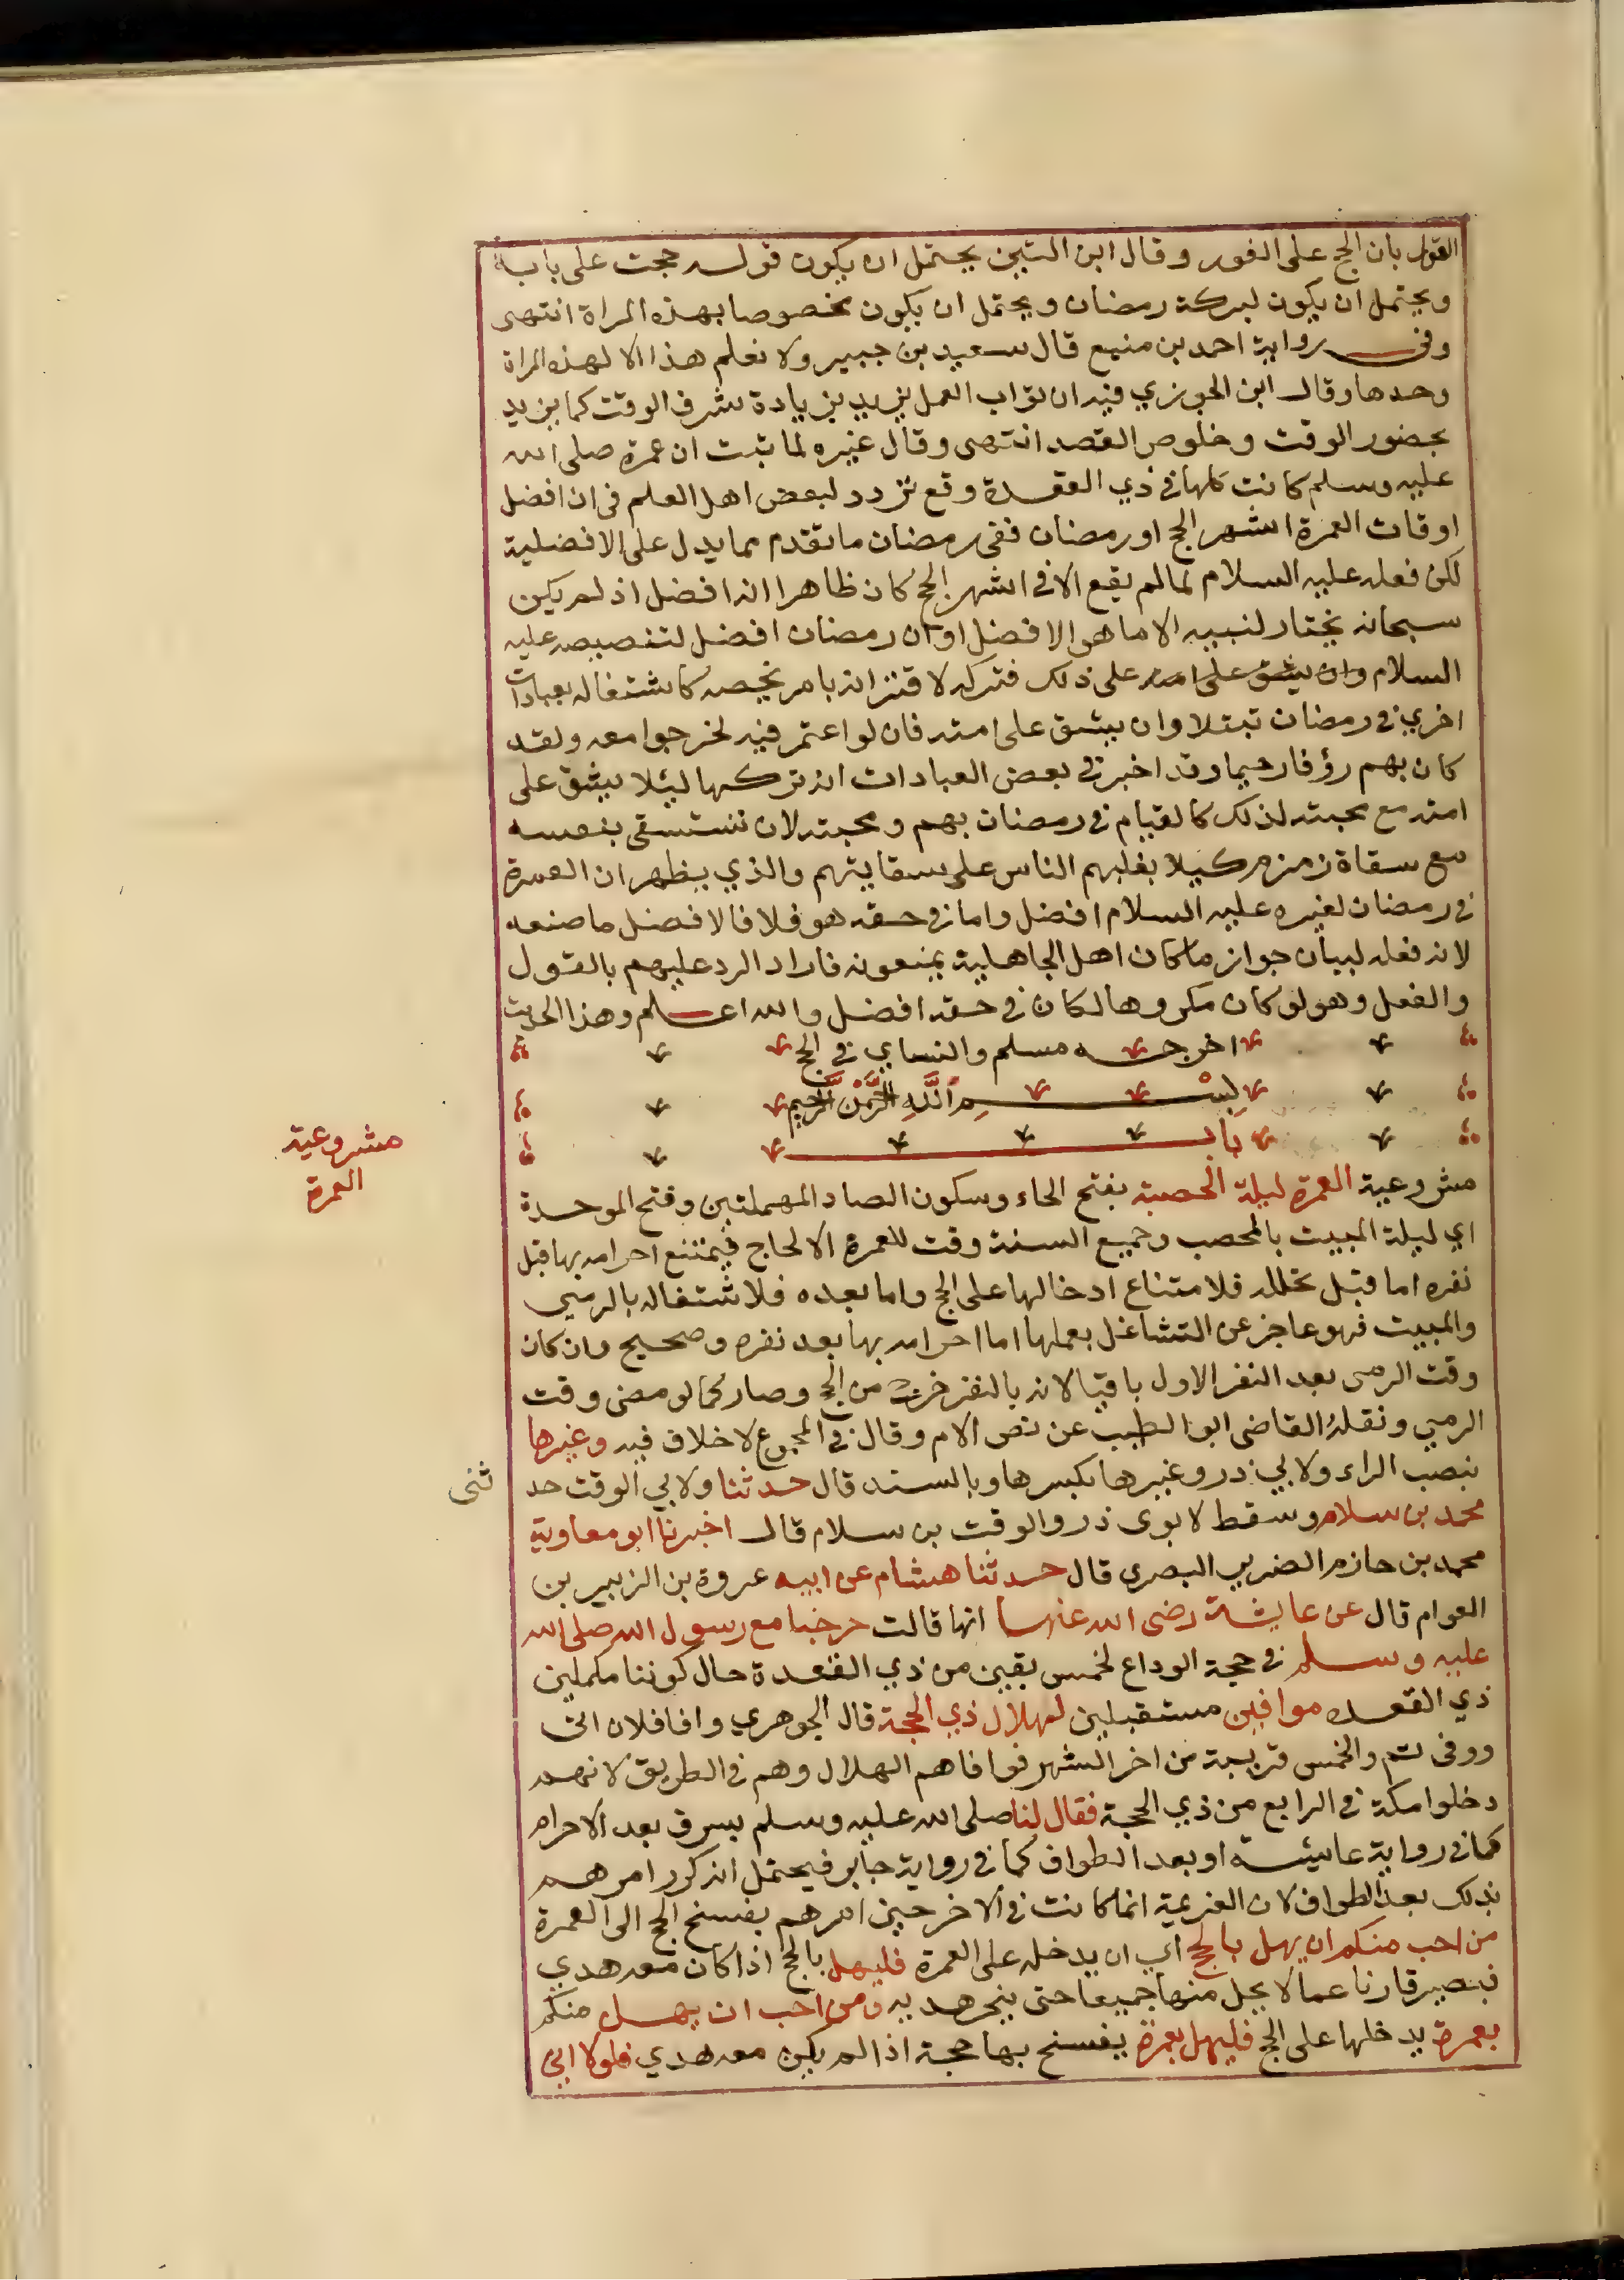 القول بان الحج على الفور وقال ابن التين يحتمل ان يكون قوله حجت على بابه
ويحتمل ان يكون لبركة رمضان ويحتمل ان يكون مخصوصا بهذه المراة انتهى
وفي رواية احمد بن منيع قال سعيد بن جبير ولا نعلم هذا الا لهذه المراة
وحدها وقال ابن الجوزي فيه ان ثواب العمل يزيد بزيادة شرف الوقت كما يزيد
بحضور الوقت وخلوص القصد انتهى وقال غيره لما ثبت ان عمرة صلى الله
عليه وسلم كانت كلها في ذي القعدة وقع تردد لبعض اهل العلم في ان افضل
اوقات العمرة اشهر الحج او رمضان ففي رمضان ما تقدم مما يدل على الافضلية
لكن فعله عليه السلام لما لم يقع الا في اشهر الحج كان ظاهرا انه افضل اذ لم يكن
سبحانه يختار لنبيه الا ما هو الافضل او ان رمضان افضل لتنصيصه عليه
السلام وان يشق على امته على ذلك فتركه لاقترانه بامر يخصه كاشتغاله بعبادات
اخري في رمضان تبتلا وان يشق على امته فان لو اعتمر فيه لخرجوا معه ولقد
كان بهم رؤفا رحيما وقد اخبر في بعض العبادات انه تركها ليئلا يشق على
امته مع محبته لذلك كالقيام في رمضان بهم ومحبته لان تستسقى بنفسه
مع سقاة زمزم كيلا يغلبهم الناس على سقايتهم والذي يظهر ان العمرة
في رمضان لغيره عليه السلام افضل واما في حقه هو فلا فالافضل ما صنعه
لانه فعله لبيان جواز ما كان اهل الجاهلية يمنعونه فاراد الرد عليهم بالقول
والفعل وهو لو كان مكروها لكان في حقه افضل والله اعلم وهذا الحديث
اخرجه مسلم والنساي في الحج
بِسْمِ اللَّهِ الرَّحْمَنِ الرَّحِيمِ
بَاب
مشروعية
العمرة
مشروعية العمرة ليلة الحصبة بفتح الحاء وسكون الصاد المهملتين وفتح الموحدة
اي ليلة المبيت بالمحصب وجميع السنة وقت للعمرة الا لحاج فيمتنع احرامه بها قبل
نفره اما قبل تحلله فلامتناع ادخالها على الحج واما بعده فلاشتغاله بالرمي
والمبيت فهو عاجز عن التشاغل بعملها اما احرامه بها بعد نفره وصحيح وان كان
وقت الرمى بعد النفر الاول باقيا لانه بالنفر خرج من الحج وصار كما لو مضى وقت
الرمي ونقله القاضى ابو الطيب عن نص الام وقال في المجموع لا خلاف فيه وغيرها
بنصب الراء ولابي ذر وغيرها بكسرها وبالسند قال حدثنا ولابي الوقت حد
ثنى
محمد بن سلام وسقط لابوى ذر والوقت بن سلام قال اخبرنا ابو معاوية
محمد بن حازم الضرير البصرى قال حدثنا هشام عن ابيه عروة بن الزبير بن
العوام قال عن عايشة رضى الله عنها انها قالت خرجنا مع رسول الله صلى الله
عليه وسلم في حجة الوداع لخمس بقين من ذي القعدة حال كوننا مكملين
ذي القعده موافين مستقبلين لهلال ذي الحجة قال الجوهري وافا فلان اتى
ووفى تم والخمس قريبة من اخر الشهر فوافاهم الهلال وهم في الطريق لانهم
دخلوا مكة في الرابع من ذي الحجة فقال لنا صلى الله عليه وسلم بسرف بعد الاحرام
كما في رواية عايشة او بعد الطواف كما في رواية جابر فيحتمل انه كرر امرهم
بذلك بعد الطواف لان العزيمة انما كانت في الاخر حين امرهم بفسخ الحج الى العمرة
من احب منكم ان يهل بالحج اي ان يدخله على العمرة فليهل بالحج اذا كان معه هدي
فيصير قارنا عما لا يحل منها جميعا حتى ينحر هديه ومن احب ان يهل منكم
بعمرة يدخلها على الحج فليهل بعمرة يفسخ بها حجة اذا لم يكن معه هدي فلولا اني